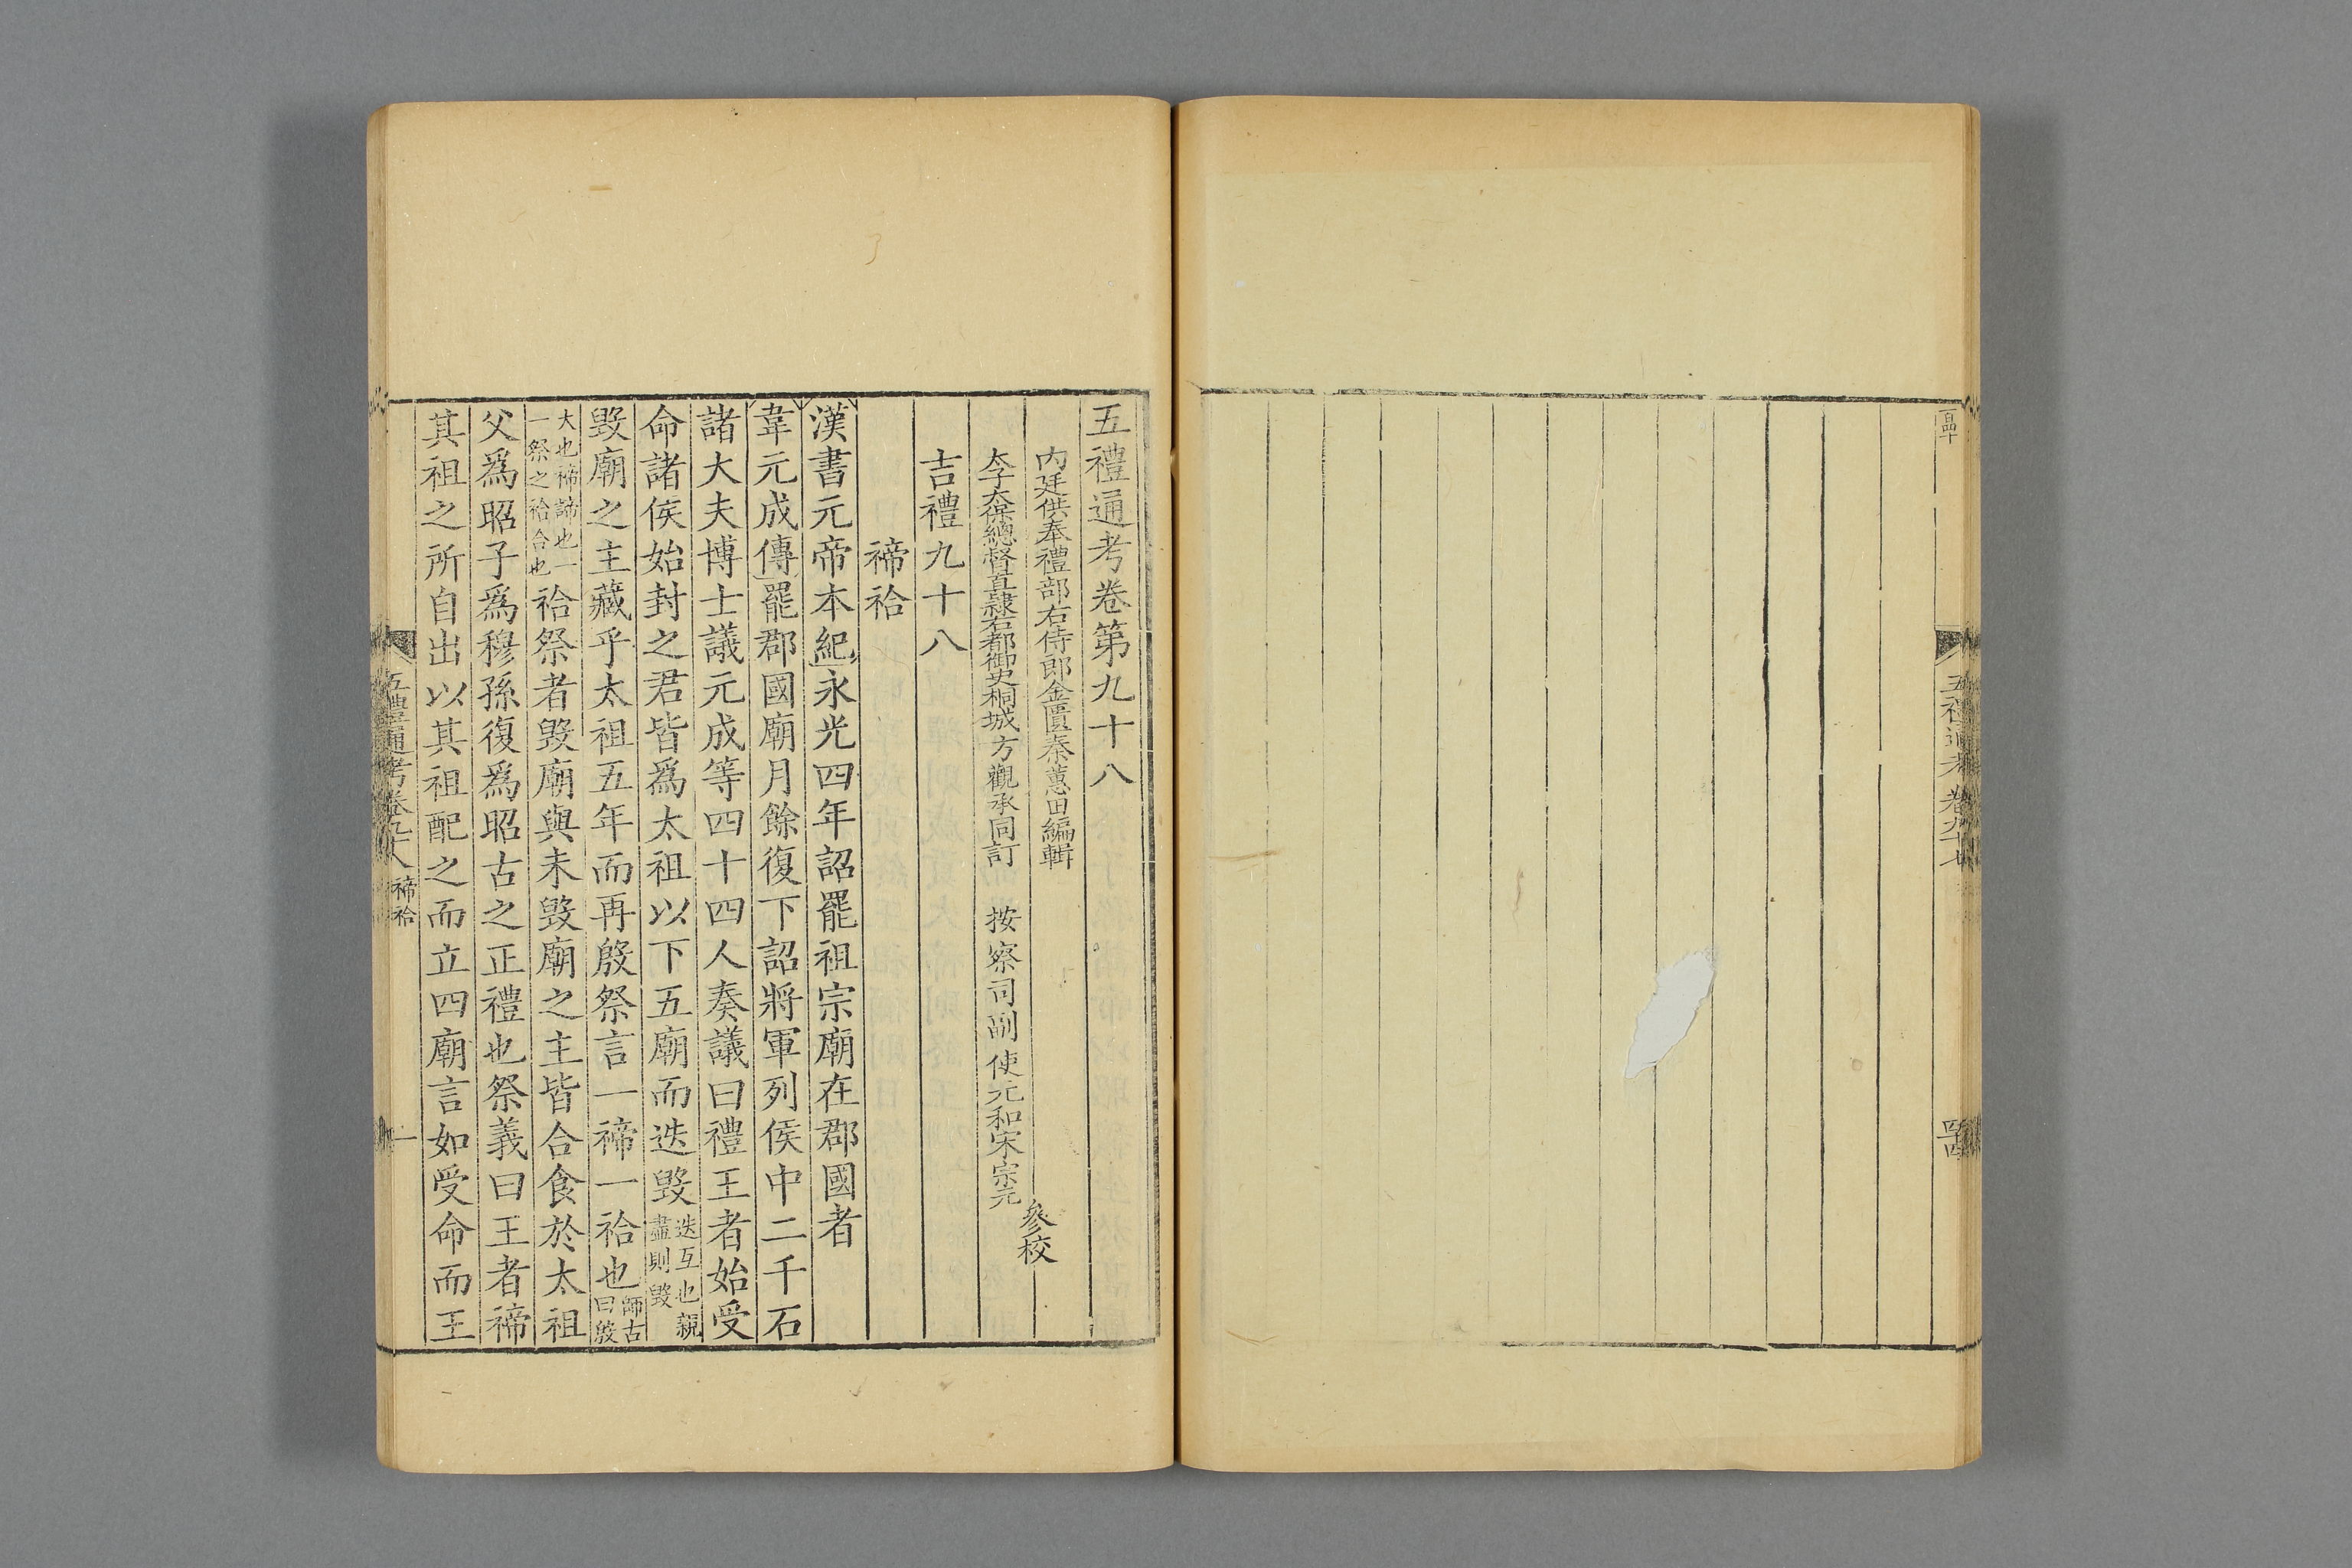 五禮通考 卷九十七
五禮通考卷第九十八
內廷供奉禮部右侍郎金匱秦蕙田編輯
太子太保總督直隸右都御史桐城方觀承同訂 按察司副使元和宋宗元
參校
吉禮九十八
禘祫
漢書元帝本紀永光四年詔罷祖宗廟在郡國者
韋元成傳罷郡國廟月餘復下詔將軍列侯中二千石
諸大夫博士議元成等四十四人奏議曰禮王者始受
命諸侯始封之君皆爲太祖以下五廟而迭毀迭互也親盡則毀
毀廟之主藏乎太祖五年而再殷祭言一禘一祫也師古曰殷
大也禘諦也一一祭之祫合也祫祭者毀廟與未毀廟之主皆合食於太祖
父爲昭子爲穆孫復爲昭古之正禮也祭義曰王者禘
其祖之所自出以其祖配之而立四廟言如受命而王
五禮通考卷九十八 禘祫 一